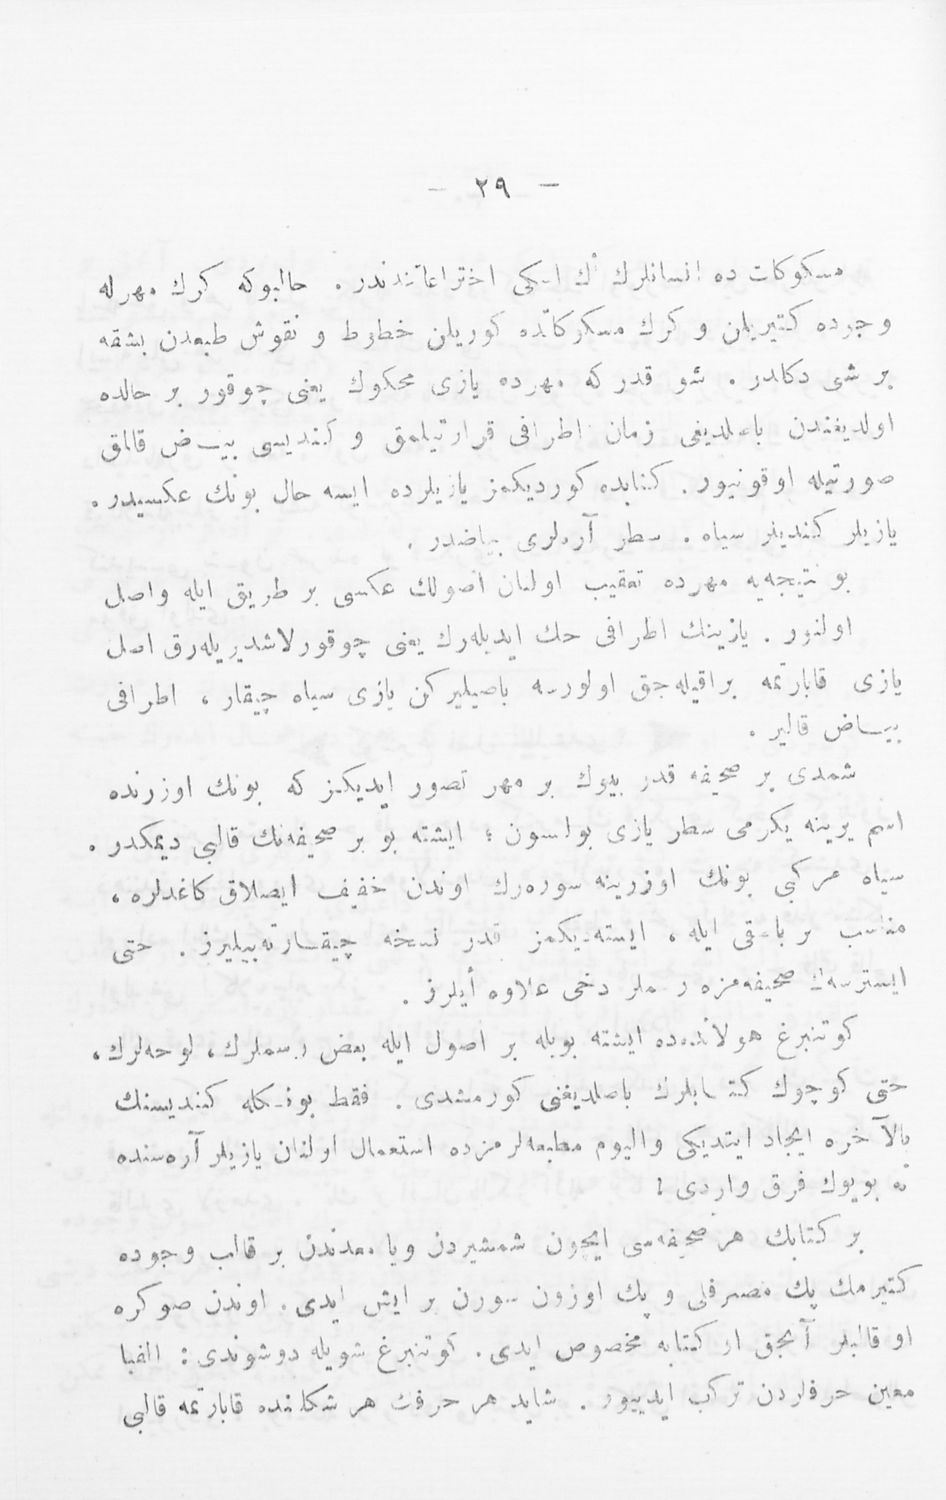 — ٢٩ —
مسكوكات ده انسانلرك اڭ اسكی اختراعاتندندر . حالبوكه كرك مهرله
وجوده كتيريلن و كرك مسكوكاتده كوريلن خطوط و نقوش طبعدن بشقه
بر شی دكلدر . شو قدر كه مهرده يازی محكوك يعنی چوقور بر حالده
اولديغندن باصلديغی زمان اطرافی قرارتيلمق و كنديسی بيـاض قالمق
صورتيله اوقونيور . كتابده كورديكمز يازيلرده ايسه حال بونك عكسيدر .
يازيلر كنديلر سياه . سطر آره‌لری بياضدر .
بو نتيجه‌يه مهرده تعقيب اولنان اصولك عكسی بر طريق ايله واصل
اولنور . يازينك اطرافی حك ايديله‌رك يعنی چوقورلاشديريله‌رق اصل
يازی قابارتمه براقيله‌جق اولورسه باصيليركن يازی سياه چيقار ، اطرافی
بيـاض قالير .
شمدی بر صحيفه قدر بيوك بر مهر تصور ايديكز كه بونك اوزرنده
اسم يرينه يكرمی سطر يازی بولسون ؛ ايشته بو بر صحيفه‌نك قالبی ديمكدر .
سياه مركبی بونك اوزرينه سوره‌رك اوندن خفيف ايصلاق كاغدلره ،
مناسب بر باصقی ايله ، ايسته‌ديكمز قدر نسخه چيقـارته‌بيليرز . حتی
ايسترسه‌ك صحيفه‌مزه رسملر دخی علاوه أيلرز .
كوتنبرغ هولانده‌ده ايشته بويله بر اصول ايله بعض رسملرك ، لوحه‌لرك ،
حتی كوچوك كتـابلرك باصلديغنی كورمشدی . فقط بونكله كنديسنك
بالآخره ايجاد ايتديكی واليوم مطبعه‌لرمزده استعمال اولنان يازيلر آره‌سنده
نه بويوك فرق واردی !
بر كتابك هر صحيفه‌سی ايچون شمشيردن ويا معدندن بر قالب وجوده
كتيرمك پك مصرفلی و پك اوزون سورن بر ايش ايدی . اوندن صوكره
او قالبلر آنجق او كتابه مخصوص ايدی . كوتنبرغ شويله دوشوندی : الفبا
معين حرفلردن تركب ايدييور . شايد هر حرفك هر شكلنده قابارتمه قالبی